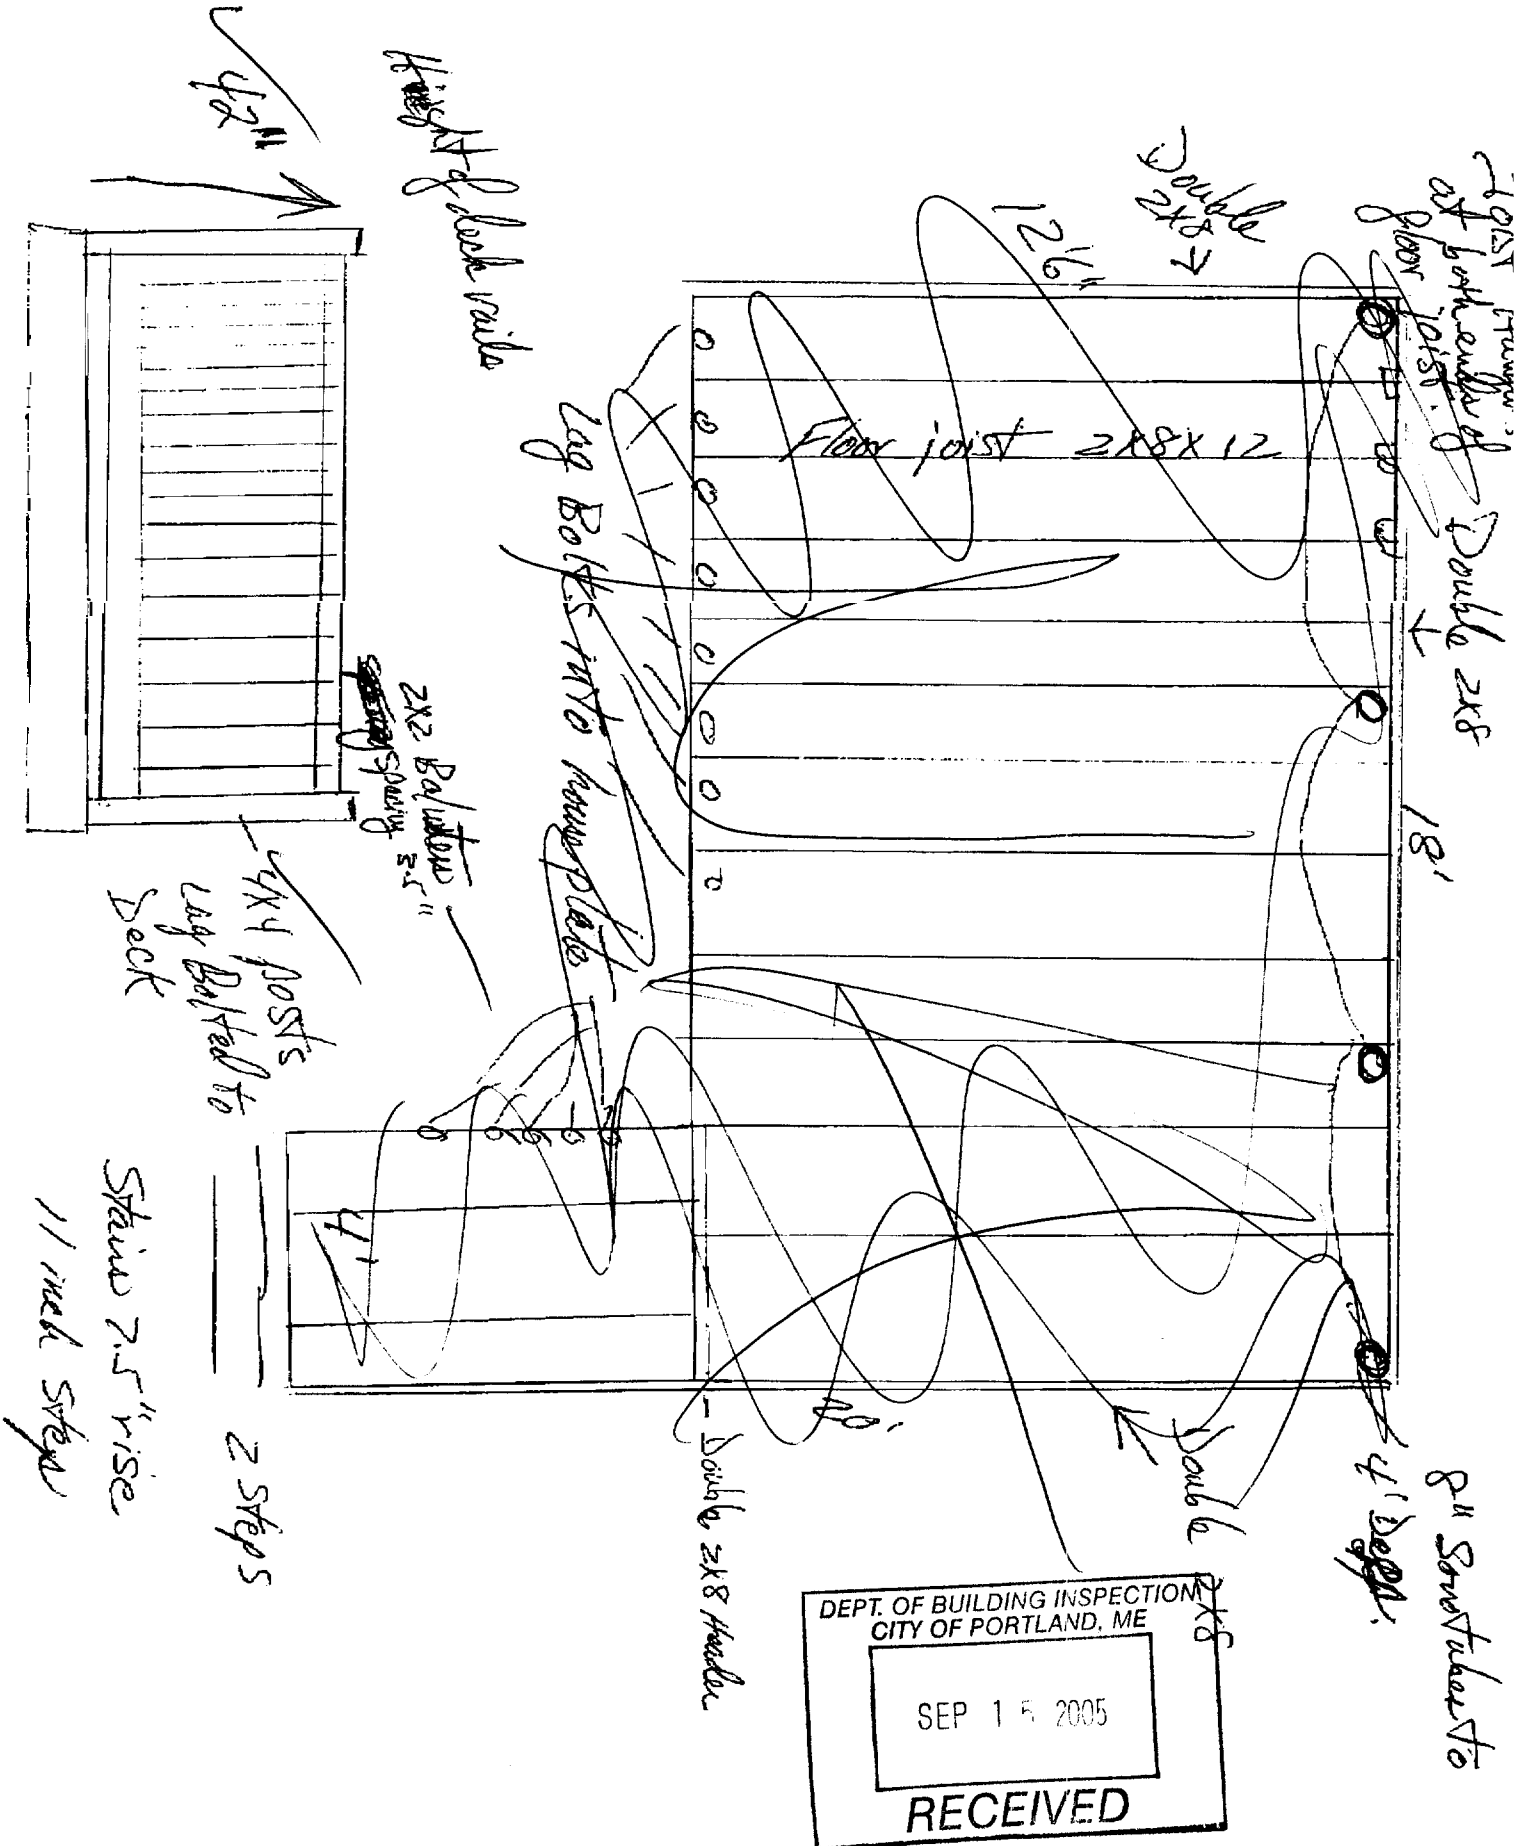 Joist
at both ends of
floor joist.
Double 2x8
18'
8" Sonotubes to
4' Deep.
Double
2x8
12'6"
Floor joist 2x8x12
Double
2x8
Lag Bolts into house plate
Double 2x8 Header
Height of deck rails
42"
2x2 Balusters
spacing 3.5"
4x4 posts
Lag Bolted to
Deck
4'
2 Steps
Stairs 7.5" rise
11 inch steps
DEPT. OF BUILDING INSPECTION
CITY OF PORTLAND, ME
SEP 15 2005
RECEIVED